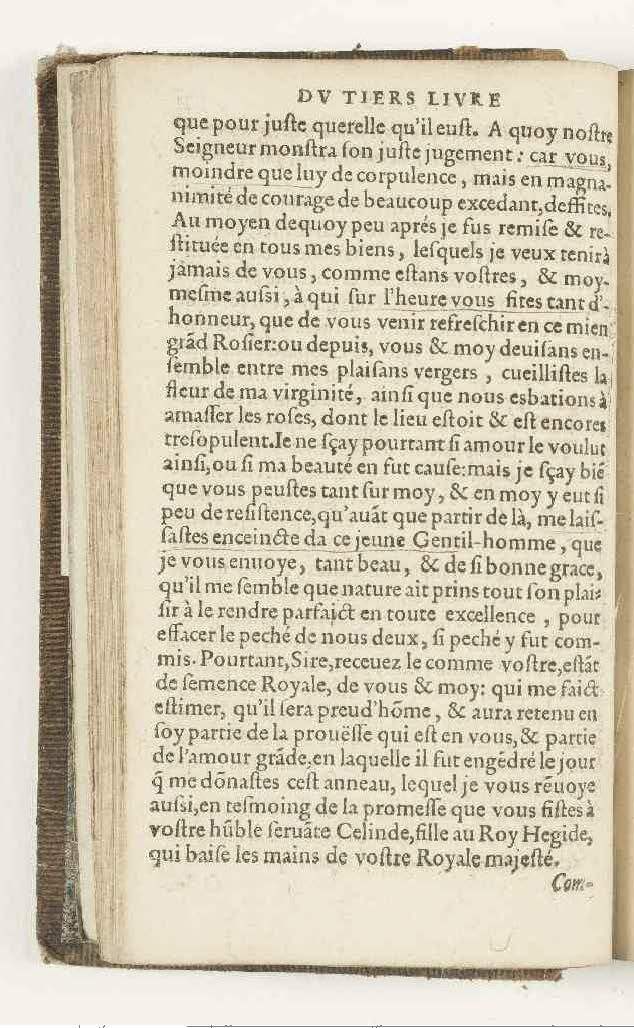 DV TIERS LIVRE
que pour juſte querelle qu'il euſt. A quoy noſtre
Seigneur monſtra ſon juſte jugement : car vous,
moindre que luy de corpulence, mais en magna-
nimité de courage de beaucoup excedant, deffites.
Au moyen dequoy peu aprés je fus remiſe & re-
ſtituée en tous mes biens, leſquels je veux tenir à
jamais de vous, comme eſtans voſtres, & moy-
meſme auſſi, à qui ſur l'heure vous fites tant d'-
honneur, que de vous venir refreſchir en ce mien
grãd Roſier: ou depuis, vous & moy deuiſans en-
ſemble entre mes plaiſans vergers, cueilliſtes la
fleur de ma virginité, ainſi que nous esbations à
amaſſer les roſes, dont le lieu eſtoit & eſt encores
treſopulent. Ie ne ſçay pourtant ſi amour le voulut
ainſi, ou ſi ma beauté en fut cauſe: mais je ſçay biẽ
que vous peuſtes tant ſur moy, & en moy y eut ſi
peu de reſiſtence, qu'auãt que partir de là, me laiſ-
ſaſtes enceincte da ce jeune Gentil-homme, que
je vous enuoye, tant beau, & de ſi bonne grace,
qu'il me ſemble que nature ait prins tout ſon plai-
ſir à le rendre parfaict en toute excellence, pour
effacer le peché de nous deux, ſi peché y fut com-
mis. Pourtant, Sire, receuez le comme voſtre, eſtãt
de ſemence Royale, de vous & moy: qui me faict
eſtimer, qu'il ſera preud'hõme, & aura retenu en
ſoy partie de la prouëſſe qui eſt en vous, & partie
de l'amour grãde, en laquelle il fut engẽdré le jour
q̃ me dõnaſtes ceſt anneau, lequel je vous rẽuoye
auſſi, en teſmoing de la promeſſe que vous fiſtes à
voſtre hũble ſeruãte Celinde, fille au Roy Hegide,
qui baiſe les mains de voſtre Royale majeſté.
Com-